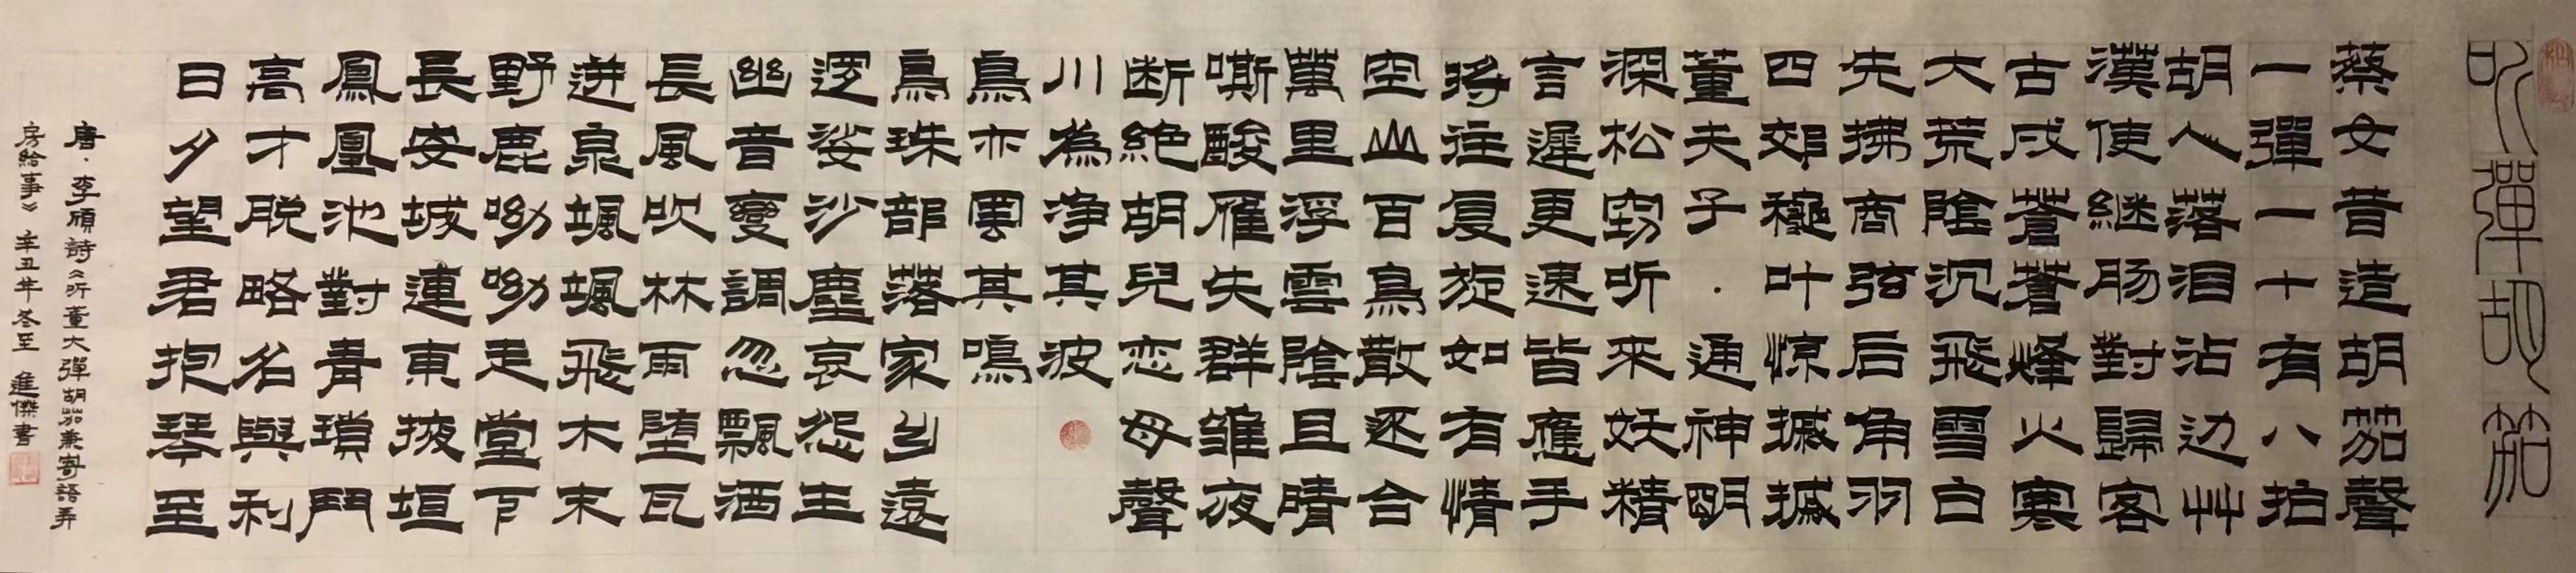 听彈胡笳
蔡女昔造胡笳聲
一彈一十有八拍
胡人落泪沾边艸
漢使継肠對歸客
古戍蒼蒼烽火寒
大荒陰沉飛雪白
先拂商弦后角羽
四郊穐叶惊摵摵
董夫子·通神明
深松窈听來妖精
言遲更速皆應手
將往复旋如有情
空山百鳥散还合
萬里浮雲陰且晴
嘶酸雁失群雏夜
断絶胡兒恋母聲
川為净其波
鳥亦罢其鳴
烏珠部落家乡遠
逻娑沙塵哀怨生
幽音變調忽飄洒
長風吹林雨堕瓦
迸泉颯颯飛木末
野鹿呦呦走堂下
長安城連東掖垣
鳳凰池對青瑣門
高才脱略名與利
日夕望君抱琴至
唐·李頎詩《听董大彈胡笳兼寄語弄
房給事》辛丑年冬至 進傑書